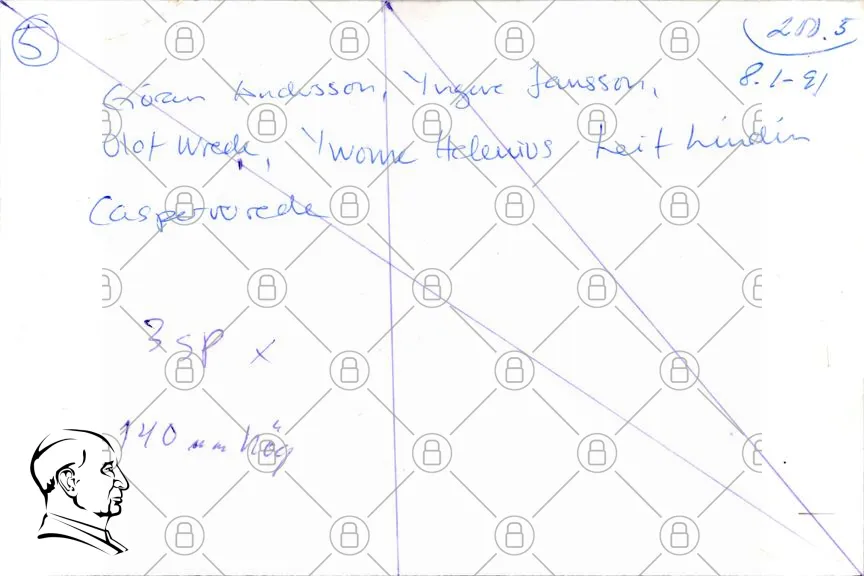 5
200.5
8.1-91
Göran Andersson, Yngve Jansson,
Olof Wrede, Yvonne Helenius Leif Lindén
Casper Wrede
3 sp x
140 mm hög